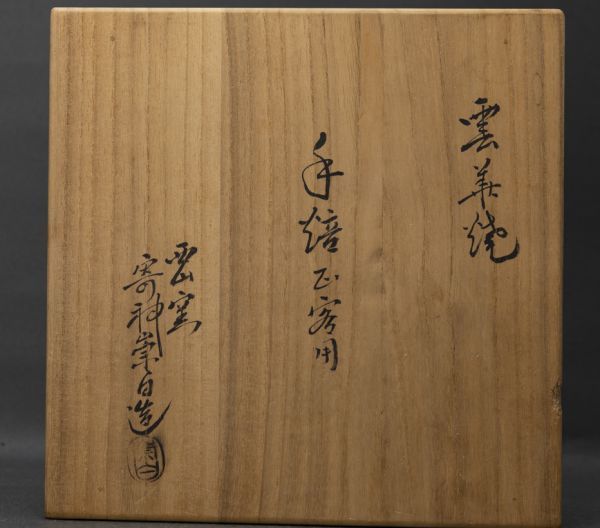 雲華焼
手焙正客用
雲窯
寄神崇白造